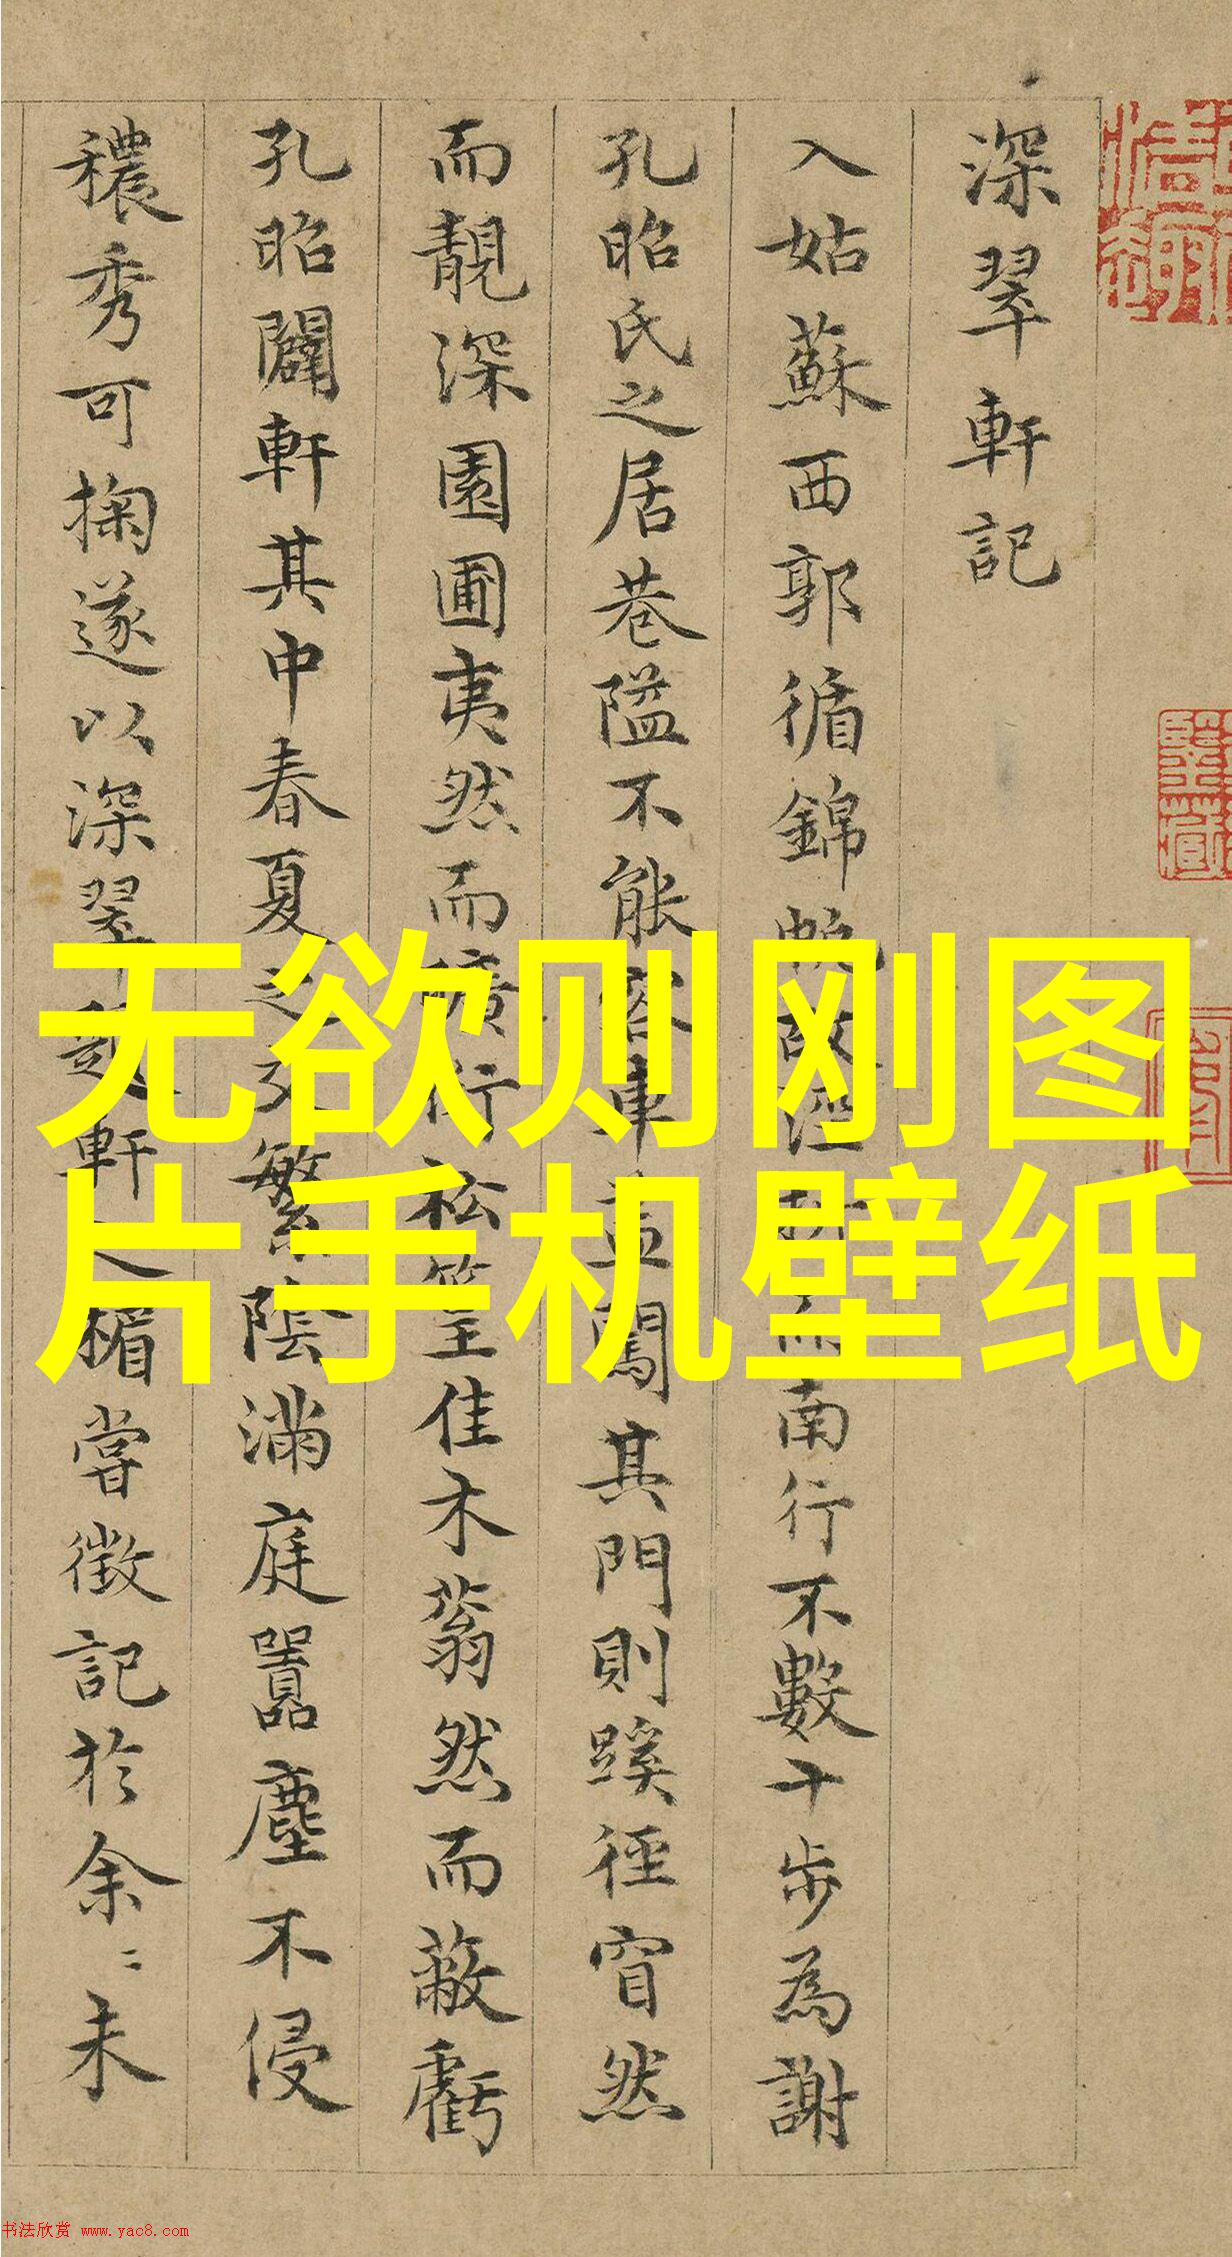 深翠軒記
入姑蘇西郭循錦帆故涇折而南行不數十步為謝
孔昭氏之居巷隘不能容車蓋闖其門則蹊徑窅然
而靚深園圃夷然而曠衍松篁佳木蓊然而蔽虧
孔昭闢軒其中春夏之交繁陰滿庭囂塵不侵
穠秀可掬遂以深翠題軒之楣嘗徵記於余〻未
无欲则刚图
片手机壁纸
书法欣赏 www.yac8.com